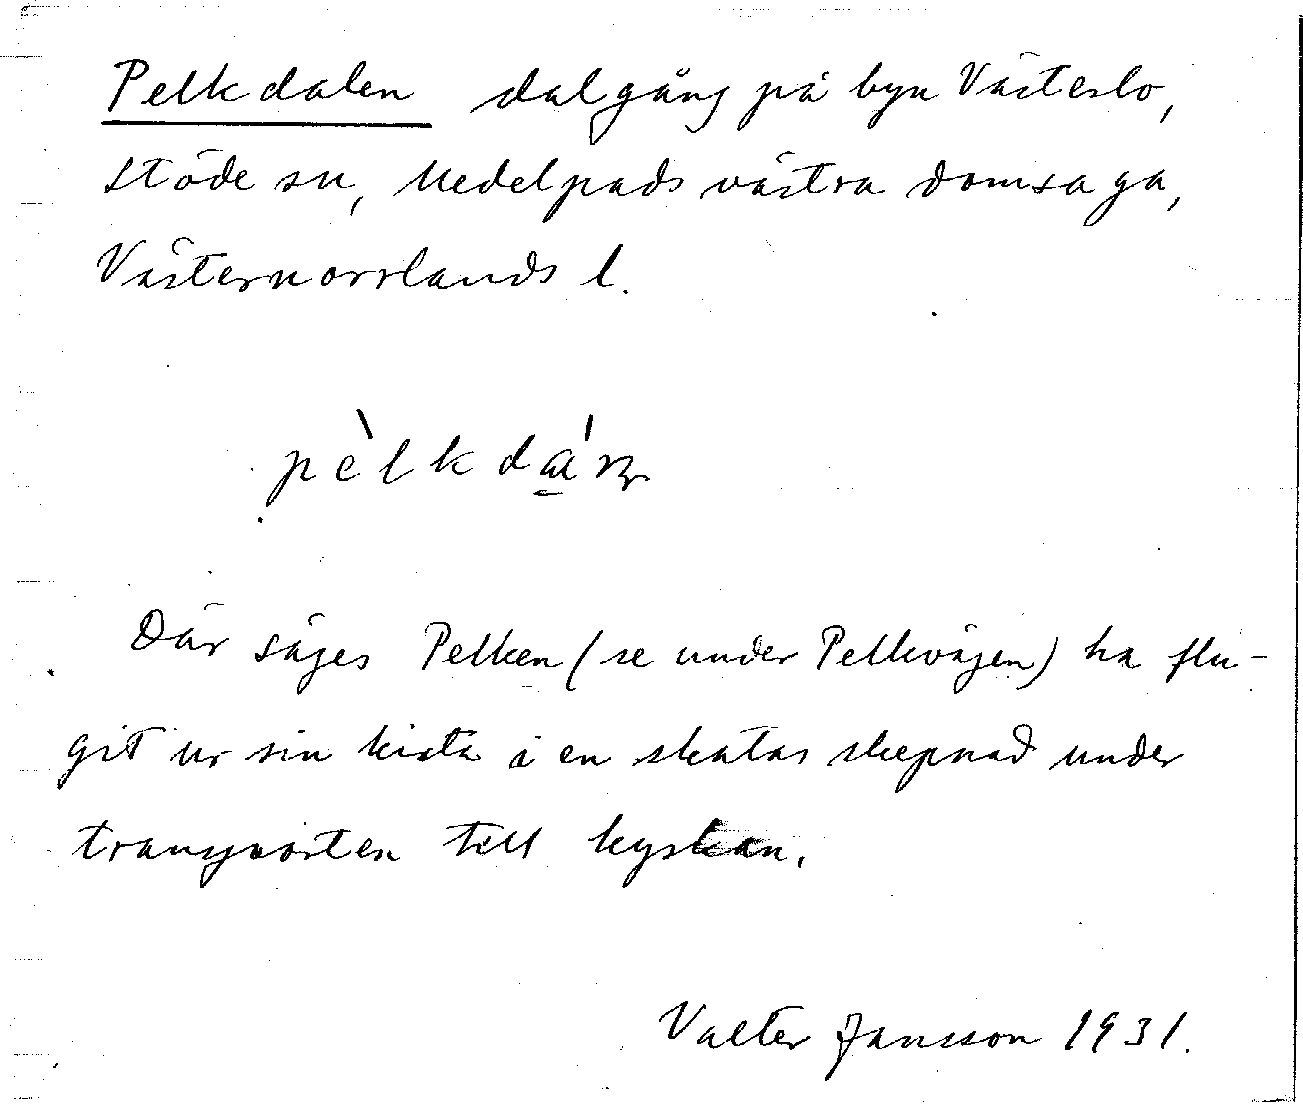 Pelkdalen dalgång på byn Västerlo,
Stöde sn, Medelpads västra domsaga,
Västernorrlands l.
Där säges Pelken (se under Pelkvägen) ha flu-
git ur sin kista i en skatas skepnad under
transporten till kyrkan.
Valter Jansson 1931.